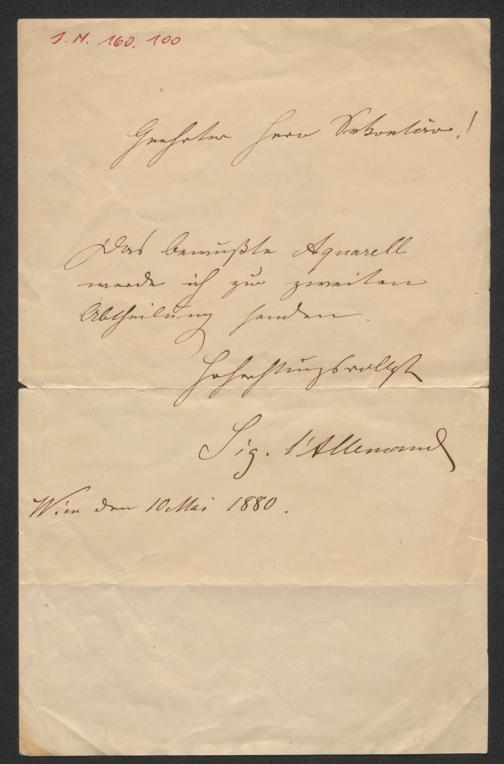 J. N. 160.100
Geehrter Herr Sekretär!
Das bewußte Aquarell
werde ich zur zweiten
Abtheilung senden.
Hochachtungsvollst
Sig. l'Allemand
Wien den 10 Mai 1880.